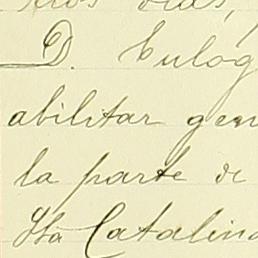 dias,
D. Eulog
abilitar gen
la parte de
Sta Catalina